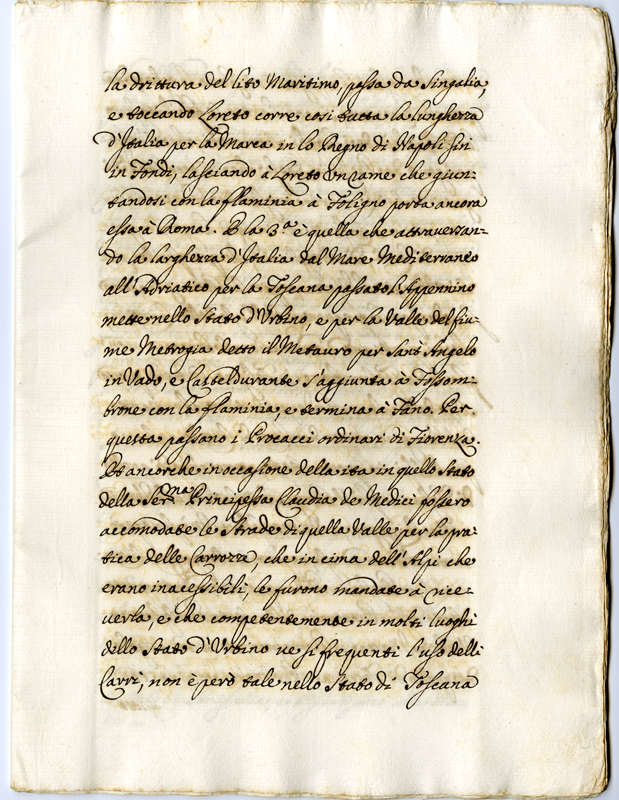 la drittura del lito Maritimo, passa da Singalia,
e toccando Loreto corre cosi tutta la lunghezza
d'Italia per la Marca in lo Regno di Napoli sin
in Fondi, lasciando à Loreto un rame che giun:
tandosi con la flaminia à Foligno porta ancora
essa à Roma. E la 3.ª è quella che attraversan:
do la larghezza d'Italia dal Mare Mediterraneo
all'Adriatico per la Toscana passato l'Appennino
mette nello Stato d'Urbino, e per la Valle del fiu:
me Metrogia detto il Metauro per Sant'Angelo
in Vado, e Casteldurante s'aggiunta à Fossom:
brone con la flaminia, e termina à Fano. Per
questa passano i Procacci ordinari di Fiorenza.
Et ancorche in occasione della ita in quello Stato
della Ser.ma Principessa Claudia de Medici fossero
accomodate le Strade di quella Valle per la pra:
tica delle Carrozze, che in cima dell'Alpi che
erano inacessibili, le furono mandate à rice:
verla, e che competentemente in molti luoghi
dello Stato d'Urbino ve si frequenti l'uso delli
Carri, non è però tale nello Stato di Toscana